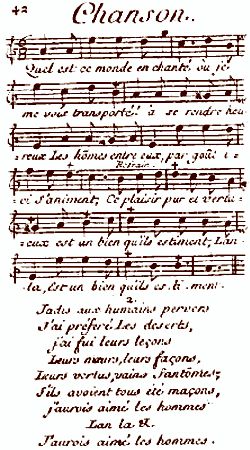 42 Chanson..
Quel est ce monde en chanté où je
me vois transporté! à se rendre heu
reux Les hômes entre eux, par goût i
Refrain
ci s'animent, Ce plaisir pur et vertu
eux est un bien qu'ils estiment, Lan
la, est un bien qu'ils es.ti.ment.
2.
Jadis aux humains pervers
J'ai préferé Les deserts,
j'ai fui leurs leçons
Leurs mœurs, leurs façons,
Leurs vertus, vains fantômes;
S'ils avoient tous été maçons,
j'aurois aimé les hommes
Lan la &.
J'aurois aimé les hommes.